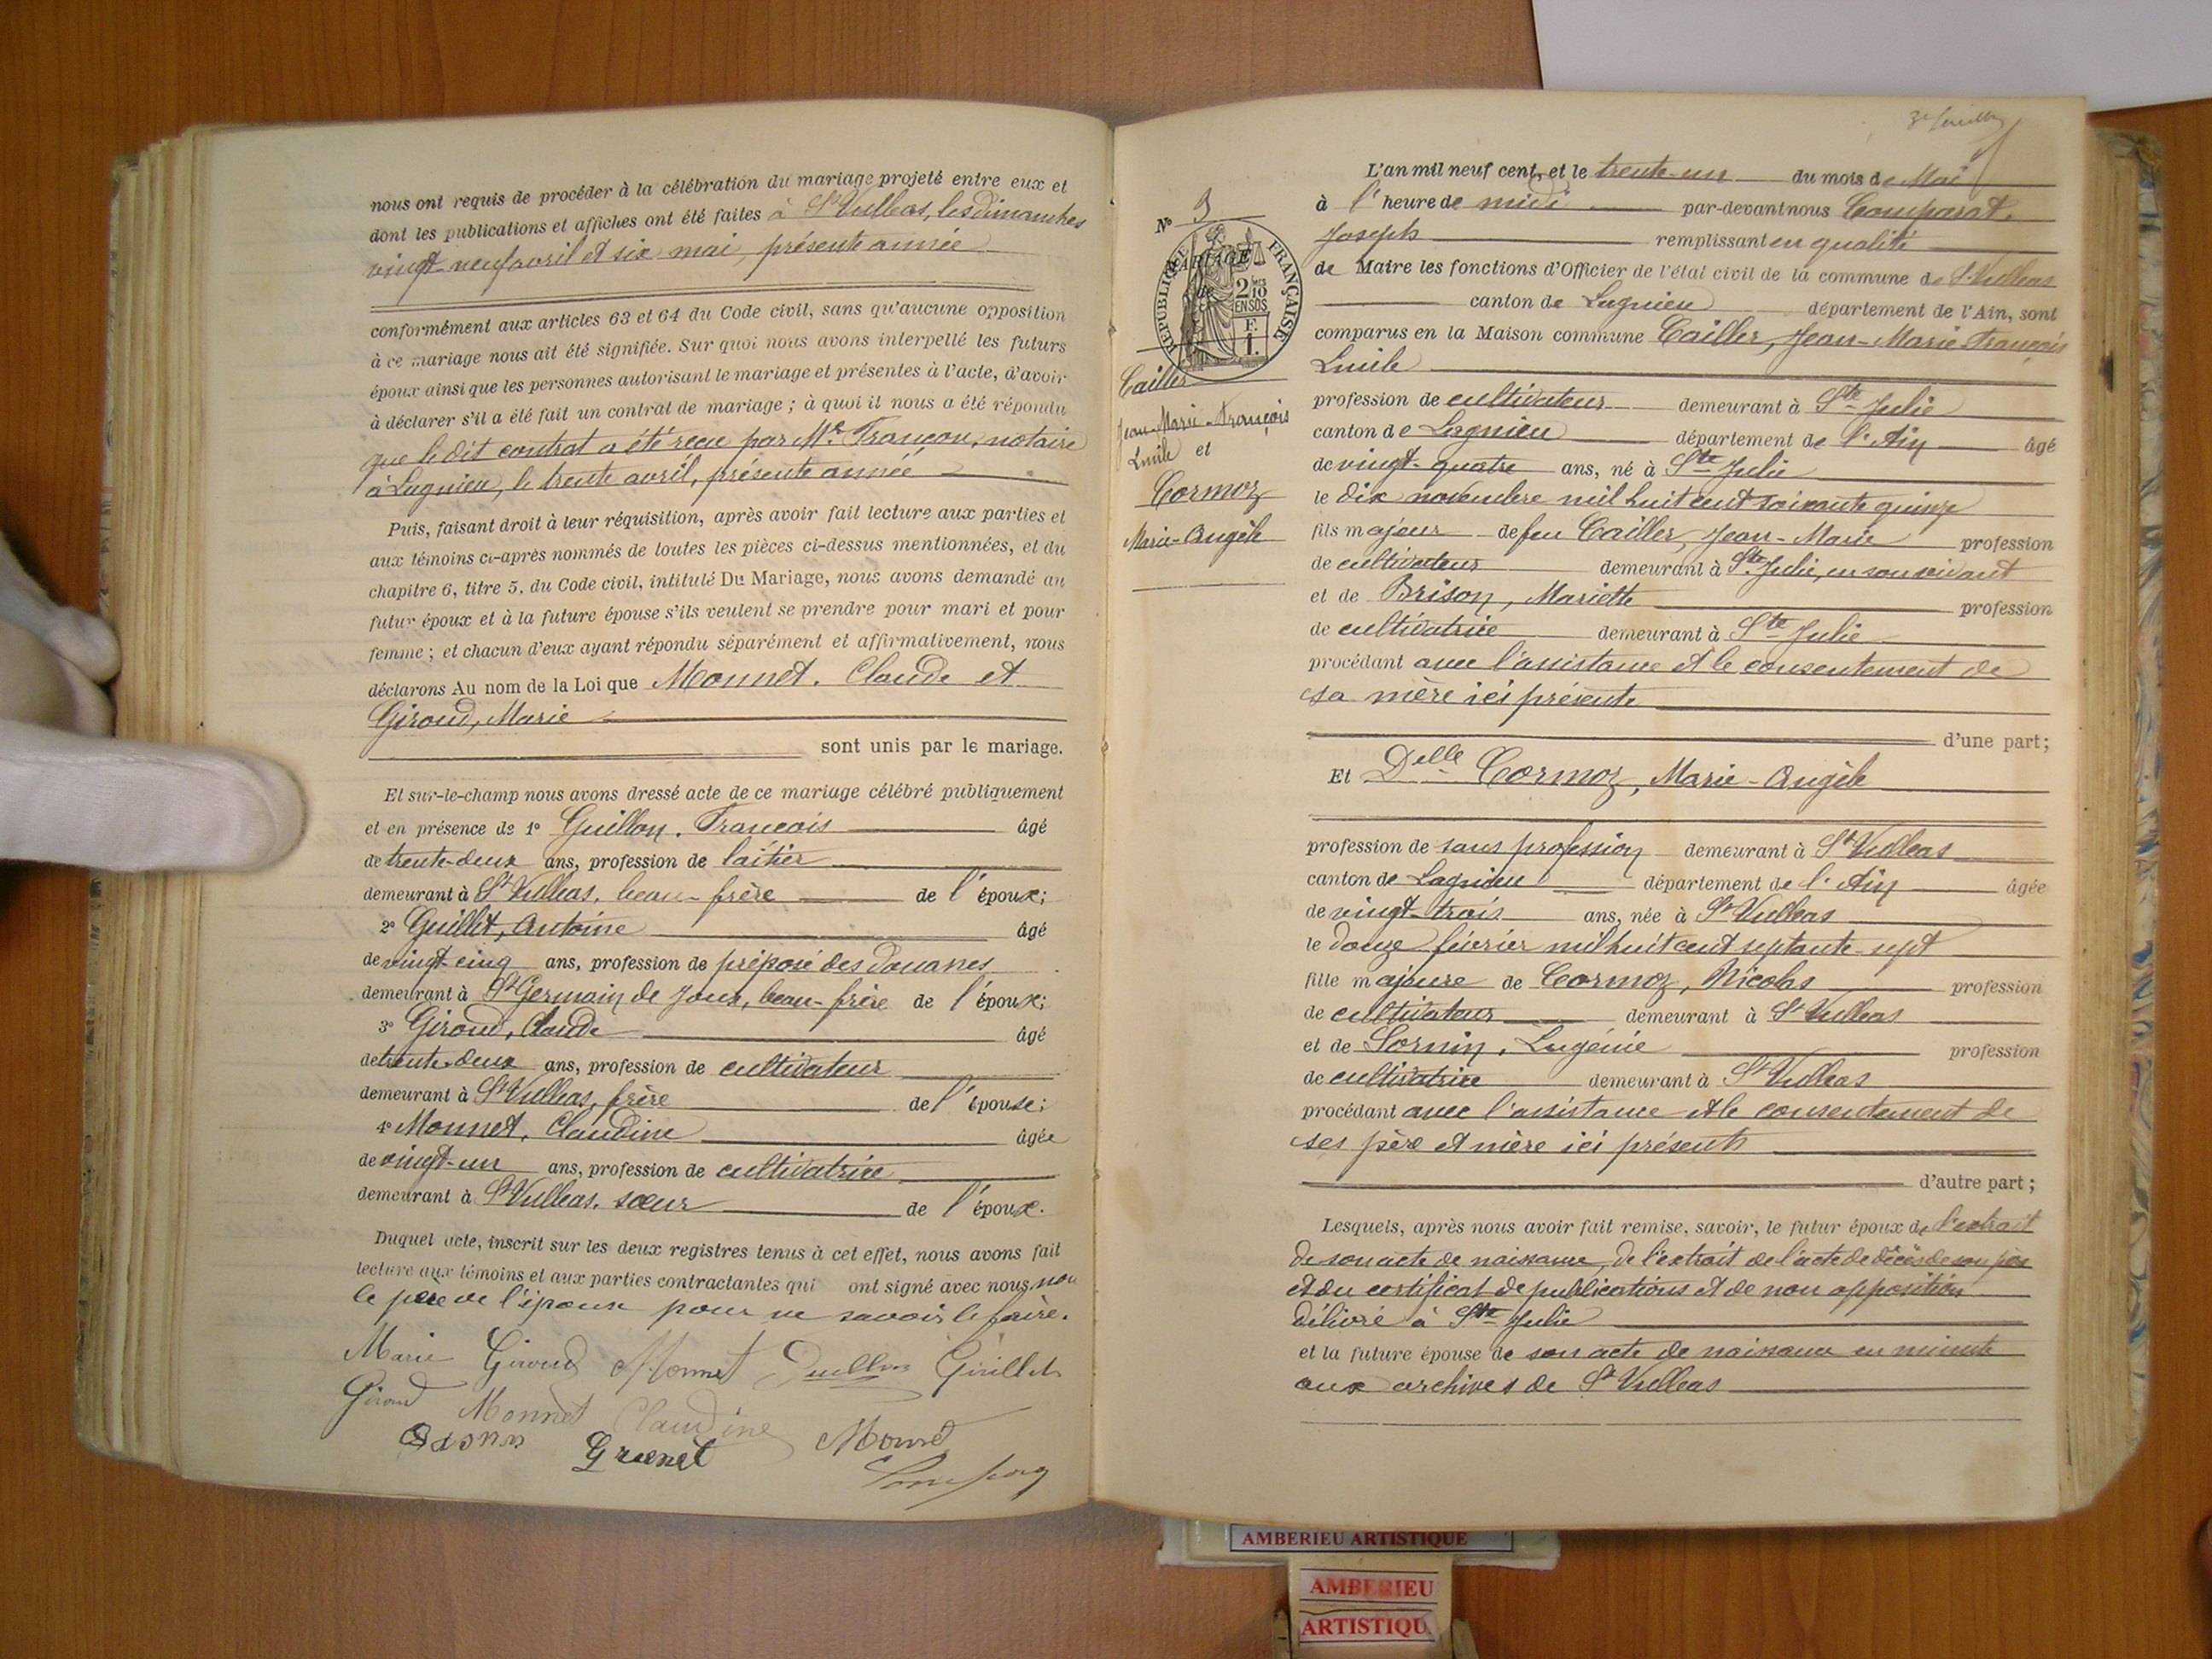 nous ont requis de procéder à la célébration du mariage projeté entre eux et
dont les publications et affiches ont été faites à St Vulbas, les dimanches
vingt-neuf avril et six mai, présente année
conformément aux articles 63 et 64 du Code civil, sans qu'aucune opposition
à ce mariage nous ait été signifiée. Sur quoi nous avons interpellé les futurs
époux ainsi que les personnes autorisant le mariage et présentes à l'acte, d'avoir
à déclarer s'il a été fait un contrat de mariage ; à quoi il nous a été répondu
que le dit contrat a été reçu par Me Françon, notaire
à Lagnieu, le trente avril, présente année
Puis, faisant droit à leur réquisition, après avoir fait lecture aux parties et
aux témoins ci-après nommés de toutes les pièces ci-dessus mentionnées, et du
chapitre 6, titre 5, du Code civil, intitulé Du Mariage, nous avons demandé au
futur époux et à la future épouse s'ils veulent se prendre pour mari et pour
femme ; et chacun d'eux ayant répondu séparément et affirmativement, nous
déclarons Au nom de la Loi que Monnet, Claude et
Giroud, Marie
sont unis par le mariage.
Et sur-le-champ nous avons dressé acte de ce mariage célébré publiquement
et en présence de 1° Guillon, François âgé
de trente-deux ans, profession de laitier
demeurant à St Vulbas, beau-frère de l'époux;
2° Guillet, Antoine âgé
de vingt-cinq ans, profession de préposé des douanes
demeurant à St Germain de Joux, beau-frère de l'époux;
3° Giroud, Claude âgé
de trente-deux ans, profession de cultivateur
demeurant à St Vulbas, frère de l'épouse;
4° Monnet, Claudine âgée
de vingt-un ans, profession de cultivatrice
demeurant à St Vulbas, sœur de l'époux.
Duquel acte, inscrit sur les deux registres tenus à cet effet, nous avons fait
lecture aux témoins et aux parties contractantes qui ont signé avec nous non
le père de l'époux pour ne savoir le faire.
Marie Giroud Monnet Guillon Guillet
Giroud Monnet Claudine Monnet
Grenet
L'an mil neuf cent, et le trente-un du mois de Mai
à l'heure de midi par-devant nous Comparat,
Joseph remplissant en qualité
de Maire les fonctions d'Officier de l'état civil de la commune de St Vulbas
canton de Lagnieu département de l'Ain, sont
comparus en la Maison commune Cailler, Jean-Marie François
Emile
profession de cultivateur demeurant à Ste Julie
canton de Lagnieu département de l'Ain âgé
de vingt-quatre ans, né à Ste Julie
le dix novembre mil huit cent soixante quinze
fils majeur de feu Cailler, Jean-Marie profession
de cultivateur demeurant à Ste Julie, en son vivant
et de Brison, Mariette profession
de cultivatrice demeurant à Ste Julie
procédant avec l'assistance et le consentement de
sa mère ici présente
d'une part;
Et Delle Cormoz, Marie-Angèle
profession de sans profession demeurant à St Vulbas
canton de Lagnieu département de l'Ain âgée
de vingt-trois ans, née à St Vulbas
le douze février mil huit cent septante-sept
fille majeure de Cormoz, Nicolas profession
de cultivateur demeurant à St Vulbas
et de Sornin, Eugénie profession
de cultivatrice demeurant à St Vulbas
procédant avec l'assistance et le consentement de
ses père et mère ici présents
d'autre part;
Lesquels, après nous avoir fait remise, savoir, le futur époux de l'extrait
de son acte de naissance, de l'extrait de l'acte de décès de son père
et du certificat de publications et de non opposition
délivré à Ste Julie
et la future épouse de son acte de naissance en minute
aux archives de St Vulbas
N° 3
MARIAGE
de
RÉPUBLIQUE FRANÇAISE
2 MES 10 EN SUS
Cailler
Jean-Marie-François
Emile et
Cormoz
Marie-Angèle
AMBERIEU ARTISTIQUE
AMBERIEU
ARTISTIQU